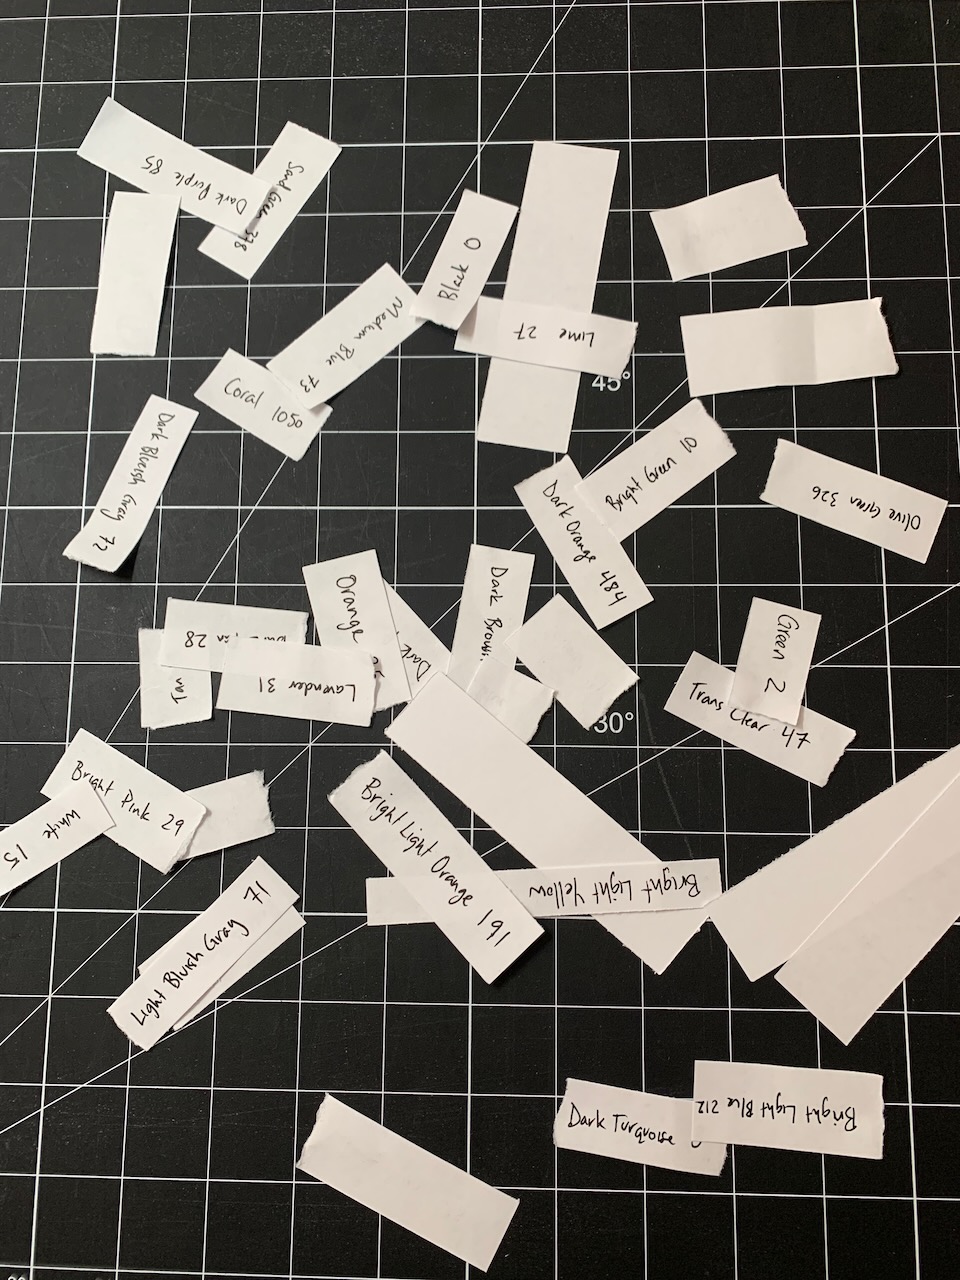 Dark Purple 85
Sand Green 378
Black 0
Medium Blue 73
Lime 27
Coral 1050
45°
Dark Bluish Gray 72
Bright Green 10
Dark Orange 484
Olive Green 326
Orange
Dark
Dark Brown
Green 2
28
Tan
Lavender 31
Trans Clear 47
30°
Bright Pink 29
White 15
Bright Light Orange 191
Bright Light Yellow
Light Bluish Gray 71
Dark Turquoise
Bright Light Blue 212